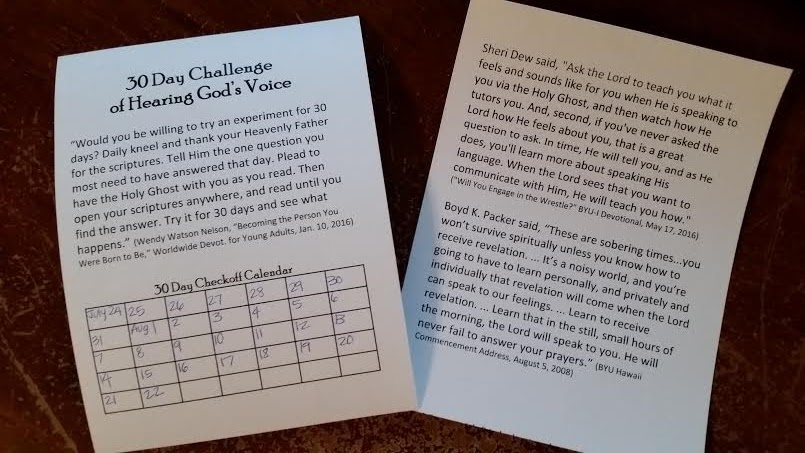 30 Day Challenge
of Hearing God's Voice
"Would you be willing to try an experiment for 30
days? Daily kneel and thank your Heavenly Father
for the scriptures. Tell Him the one question you
most need to have answered that day. Plead to
have the Holy Ghost with you as you read. Then
open your scriptures anywhere, and read until you
find the answer. Try it for 30 days and see what
happens." (Wendy Watson Nelson, "Becoming the Person You
Were Born to Be," Worldwide Devot. for Young Adults, Jan. 10, 2016)
30 Day Checkoff Calendar
July 24 25 26 27 28 29 30
31 Aug 1 2 3 4 5 6
7 8 9 10 11 12 13
14 15 16 17 18 19 20
21 22
Sheri Dew said, "Ask the Lord to teach you what it
feels and sounds like for you when He is speaking to
you via the Holy Ghost, and then watch how He
tutors you. And, second, if you've never asked the
Lord how He feels about you, that is a great
question to ask. In time, He will tell you, and as He
does, you'll learn more about speaking His
language. When the Lord sees that you want to
communicate with Him, He will teach you how."
("Will You Engage in the Wrestle?" BYU-I Devotional, May 17, 2016)
Boyd K. Packer said, "These are sobering times...you
won't survive spiritually unless you know how to
receive revelation. ... It's a noisy world, and you're
going to have to learn personally, and privately and
individually that revelation will come when the Lord
can speak to our feelings. ... Learn to receive
revelation. ... Learn that in the still, small hours of
the morning, the Lord will speak to you. He will
never fail to answer your prayers." (BYU Hawaii
Commencement Address, August 5, 2008)